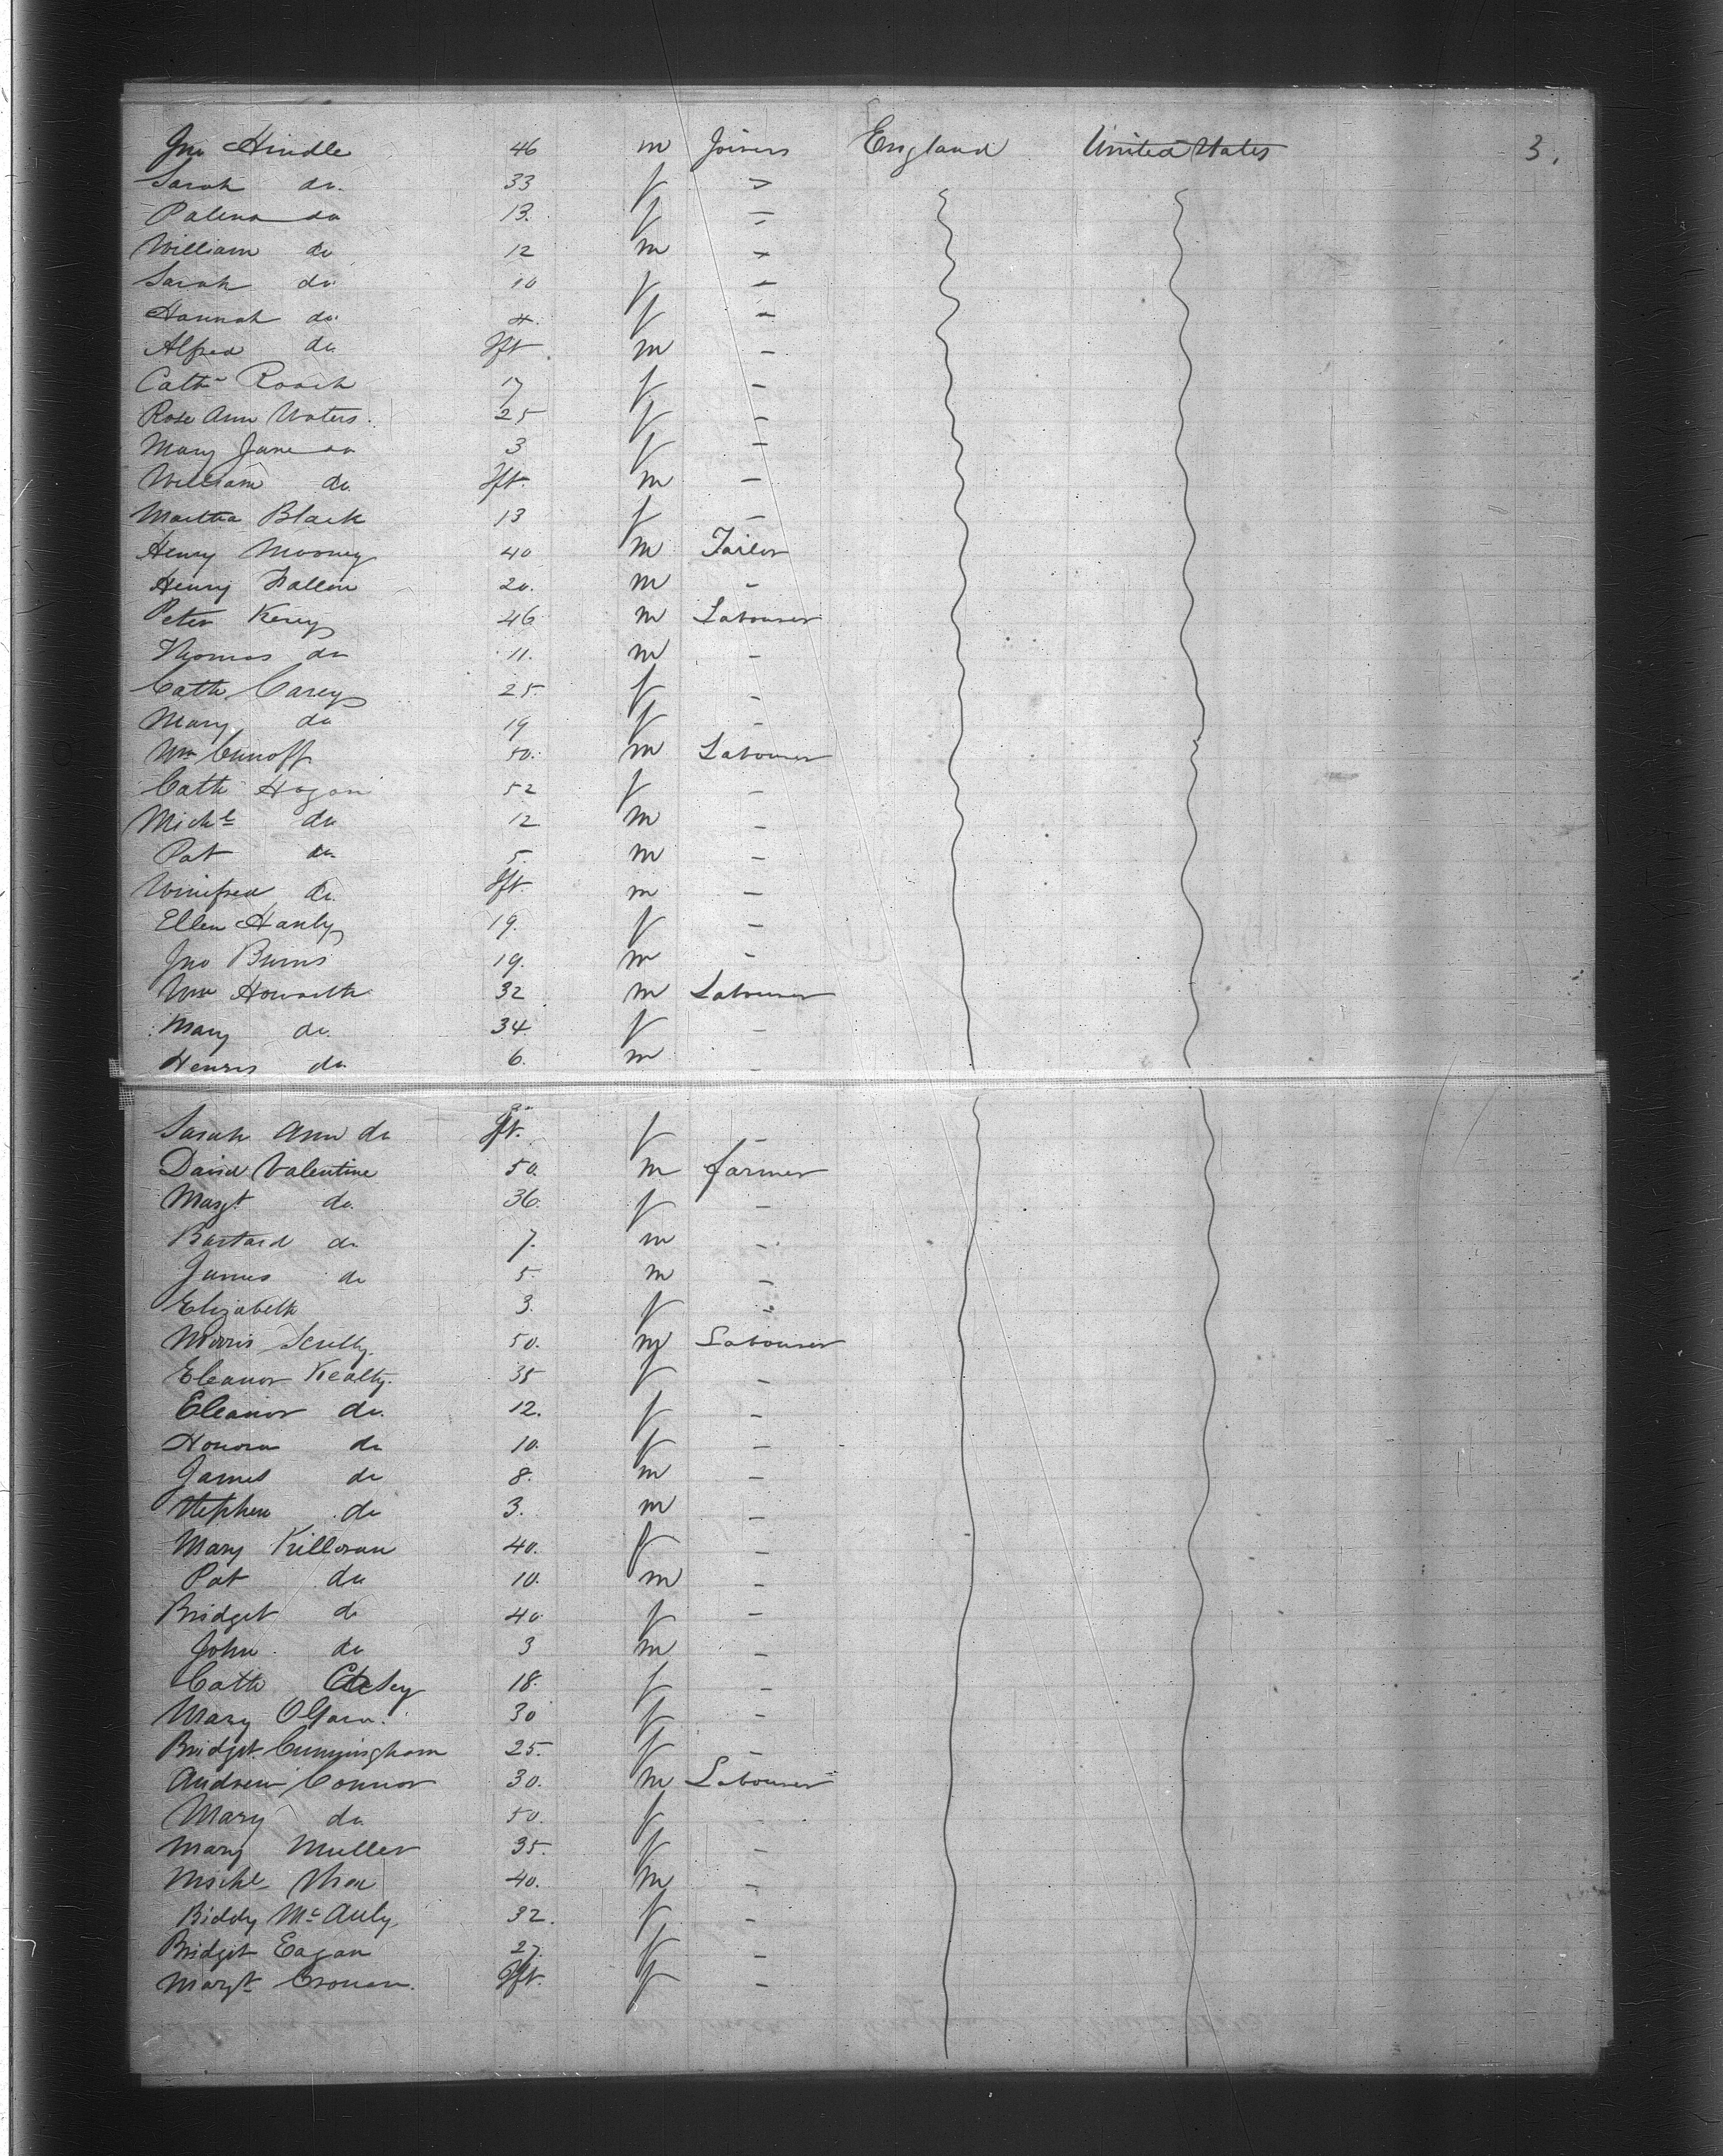 Jno Hindle 46 m Joiners England United States 3.
Sarah do. 33 f "
Palina do 13. f "
William do 12 m "
Sarah do 10 f "
Hannah do. 4. f "
Alfred do. Ift m -
Cathn Roach 17 f -
Rose Ann Waters. 25 f -
Mary Jane do 3 f -
William do. Ift. m -
Martha Black 13 f -
Henry Mooney 40 m Tailor
Henry Fallon 20. m -
Peter Kerey 46 m Labourer
Thomas do 11. m -
Cath Carey 25. f -
Mary do 19 f -
Wm 50. m Labourer
Cath Hogan 52 f -
Michl do 12 m -
Pat do 5. m -
Winifred do. Ift. m -
Ellen Hanly 19. f -
Jno Burns 19. m -
Wm Howarth 32 m Labourer
Mary do. 34 f -
Henry do 6. m -
Sarah Ann do Ift. f -
David Valentine 50. m farmer
Margt do. 36. f -
do. 7. m -
James do 5. m -
Elizabeth 3. f "
Morris Scully. 50. m Labourer
Eleanor Kealty. 35 f -
Eleanor do. 12. f -
Honora do 10. f -
James do 8. m -
Stephen do 3. m -
Mary Killoran 40. f -
Pat do 10. m -
Bridget do 40. f -
John do 3 m -
Cath 18. f -
Mary OGara. 30 f -
Bridget Cunningham 25. f -
Andrew Connor 30. m Labourer
Mary do. 50. f -
Mary Muller 35. f -
Michl 40. m -
Biddy McAuly 32. f -
Bridget Eagan 27. f -
Margt Cronan. Ift. f -